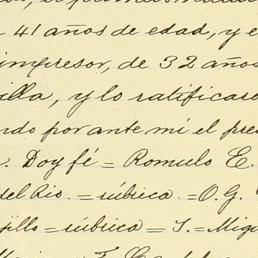 41 años de edad, y e
impresor, de 32 años
illa, y lo ratificaro
ndo por ante mí el pre
. Doy fé = Romulo E.
del Rio. = rúbrica = O. G.
pillo = rúbrica = J. = Migu